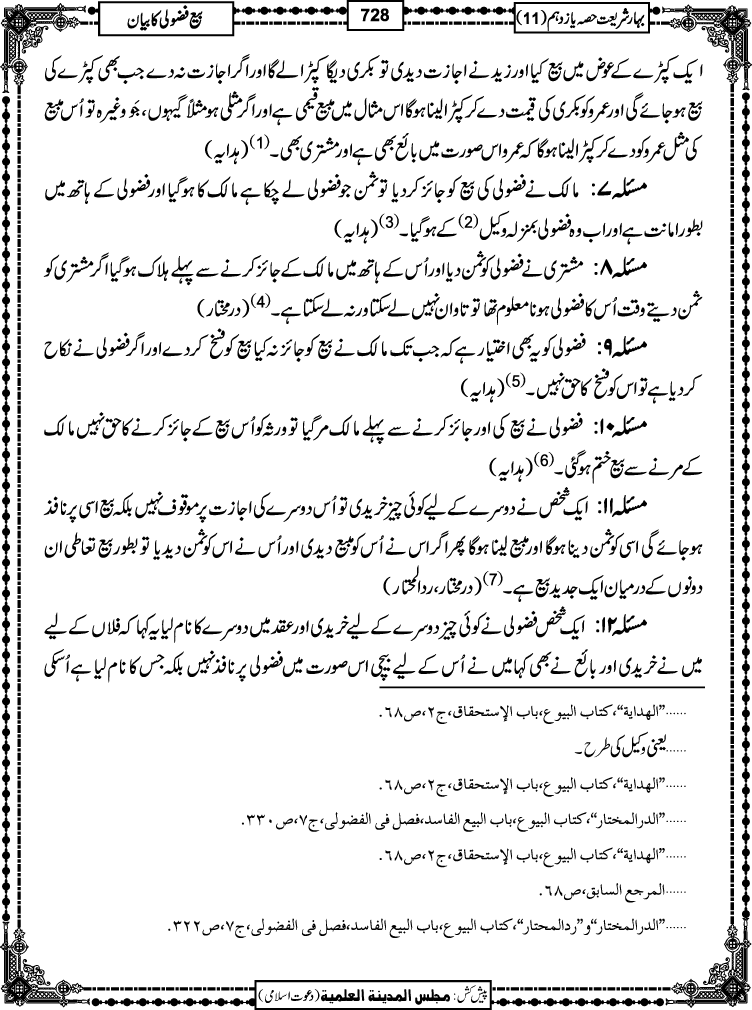 بہارِ شریعت حصہ یازدہم (11)
728
بیع فضولی کا بیان
ایک کپڑے کے عوض میں بیع کیا اور زید نے اجازت دیدی تو بکری دیگا کپڑا لے گا اور اگر اجازت نہ دے جب بھی کپڑے کی
بیع ہو جائے گی اور عمرو کو بکری کی قیمت دے کر کپڑا لینا ہوگا اس مثال میں مبیع قیمی ہے اور اگر مثلی ہو مثلاً گیہوں، جَو وغیرہ تو اُس مبیع
کی مثل عمرو کو دے کر کپڑا لینا ہوگا کہ عمرو اس صورت میں بائع بھی ہے اور مشتری بھی۔(1) (ہدایہ)
مسئلہ ۷: مالک نے فضولی کی بیع کو جائز کر دیا تو ثمن جو فضولی لے چکا ہے مالک کا ہوگیا اور فضولی کے ہاتھ میں
بطور امانت ہے اور اب وہ فضولی بمنزلہ وکیل (2) کے ہوگیا۔(3) (ہدایہ)
مسئلہ ۸: مشتری نے فضولی کو ثمن دیا اور اُس کے ہاتھ میں مالک کے جائز کرنے سے پہلے ہلاک ہوگیا اگر مشتری کو
ثمن دیتے وقت اُس کا فضولی ہونا معلوم تھا تو تاوان نہیں لے سکتا ورنہ لے سکتا ہے۔(4) (درمختار)
مسئلہ ۹: فضولی کو یہ بھی اختیار ہے کہ جب تک مالک نے بیع کو جائز نہ کیا بیع کو فسخ کر دے اور اگر فضولی نے نکاح
کر دیا ہے تو اس کو فسخ کا حق نہیں۔(5) (ہدایہ)
مسئلہ ۱۰: فضولی نے بیع کی اور جائز کرنے سے پہلے مالک مرگیا تو ورثہ کو اُس بیع کے جائز کرنے کا حق نہیں مالک
کے مرنے سے بیع ختم ہوگئی۔(6) (ہدایہ)
مسئلہ ۱۱: ایک شخص نے دوسرے کے لیے کوئی چیز خریدی تو اُس دوسرے کی اجازت پر موقوف نہیں بلکہ بیع اسی پر نافذ
ہو جائے گی اسی کو ثمن دینا ہوگا اور مبیع لینا ہوگا پھر اگر اس نے اُس کو مبیع دیدی اور اُس نے اس کو ثمن دیدیا تو بطور بیع تعاطی ان
دونوں کے درمیان ایک جدید بیع ہے۔(7) (درمختار، ردالمحتار)
مسئلہ ۱۲: ایک شخص فضولی نے کوئی چیز دوسرے کے لیے خریدی اور عقد میں دوسرے کا نام لیا یہ کہا کہ فلاں کے لیے
میں نے خریدی اور بائع نے بھی کہا میں نے اُس کے لیے بیچی اس صورت میں فضولی پر نافذ نہیں بلکہ جس کا نام لیا ہے اُسکی
......”الهداية“،کتاب البیوع،باب الإستحقاق،ج۲،ص۶۸.
......یعنی وکیل کی طرح ۔
......”الهداية“،کتاب البیوع،باب الإستحقاق،ج۲،ص۶۸.
......”الدرالمختار“، کتاب البیوع،باب البیع الفاسد،فصل فی الفضولی،ج۷،ص۳۳۰.
......”الهداية“، کتاب البیوع،باب الإستحقاق،ج۲،ص۶۸.
......المرجع السابق،ص۶۸.
......”الدرالمختار“و”ردالمحتار“،کتاب البیوع،باب البیع الفاسد،فصل فی الفضولی،ج۷،ص۳۲۲.
پیش کش: مجلس المدینة العلمیة (دعوت اسلامی)